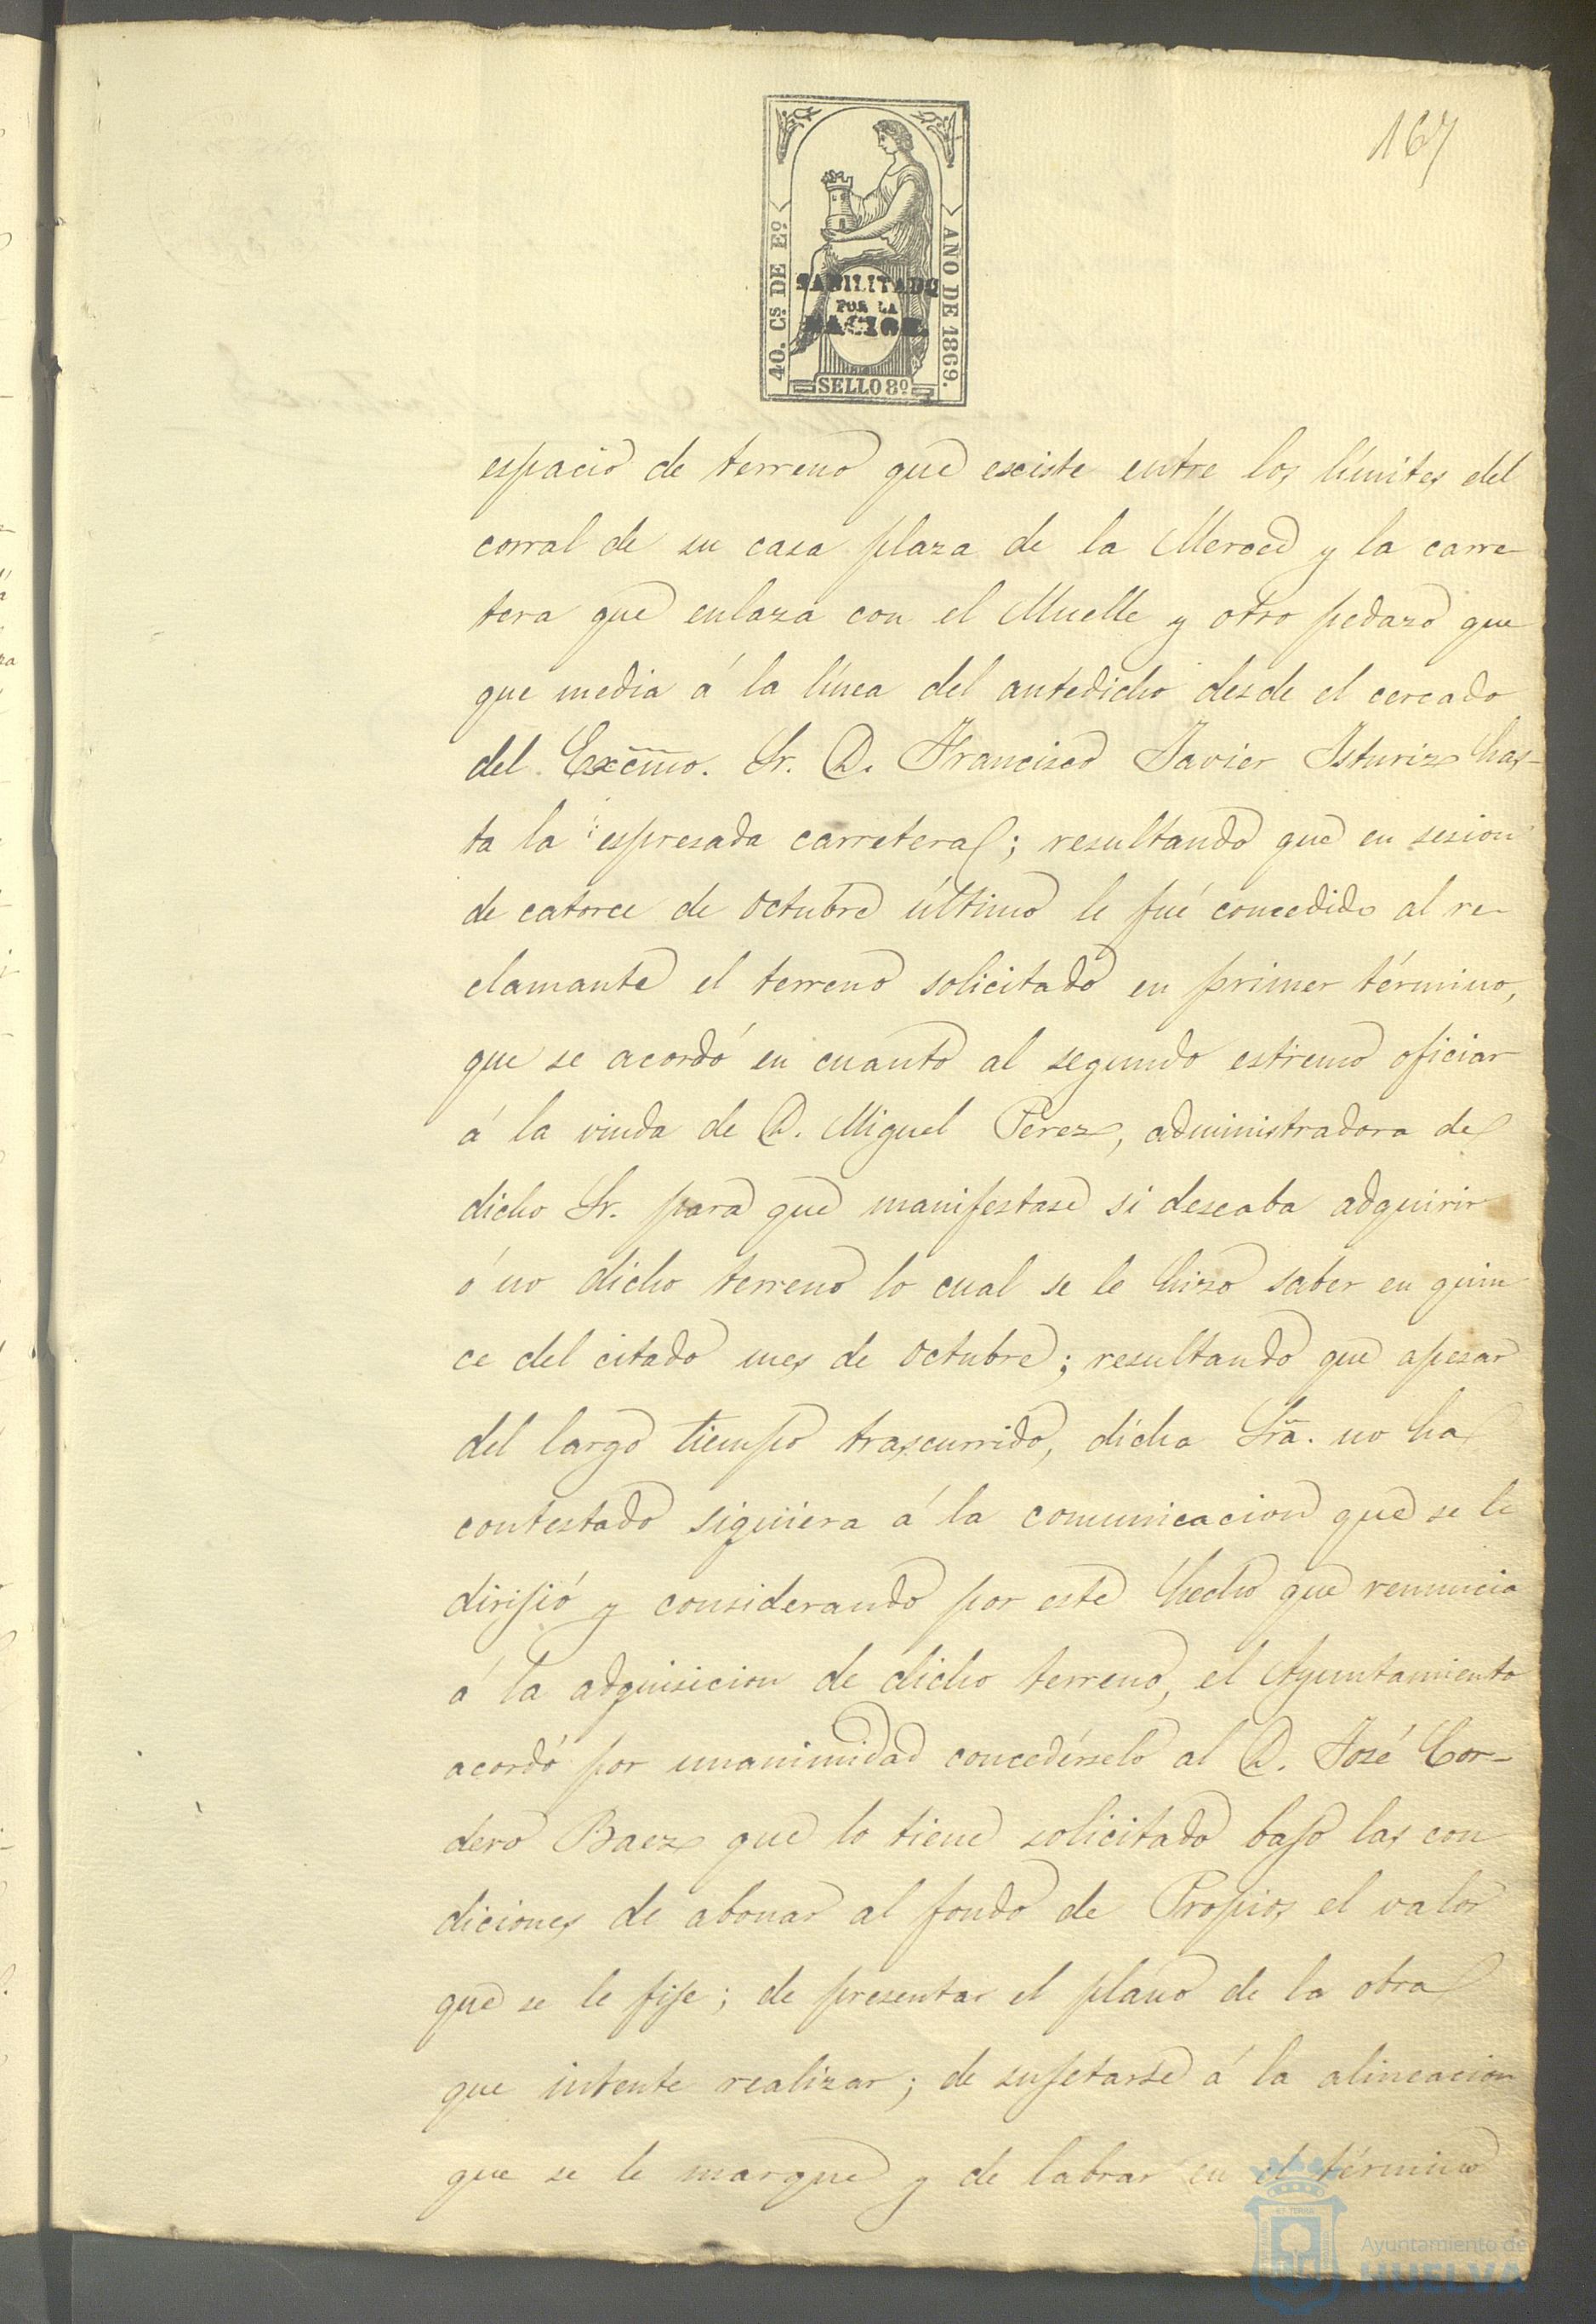 167
40. Cs. DE Eº.
AÑO DE 1869.
HABILITADO
POR LA
NACION.
SELLO 8º
espacio de terreno que existe entre los límites del
corral de su casa plaza de la Merced y la carre-
tera que enlaza con el Muelle y otro pedazo que
que media á la línea del antedicho desde el cercado
del Excmo. Sr. D. Francisco Javier Isturiz has-
ta la espresada carretera; resultando que en sesion
de catorce de Octubre último le fué concedido al re-
clamante el terreno solicitado en primer término,
que se acordó en cuanto al segundo estremo oficiar
á la viuda de D. Miguel Perez, administradora de
dicho Sr. para que manifestase si deseaba adquirir
ó no dicho terreno lo cual se le hizo saber en quin
ce del citado mes de Octubre; resultando que apesar
del largo tiempo trascurrido, dicha Sra. no ha
contestado siquiera á la comunicacion que se le
dirijió y considerando por este hecho que renuncia
á la adquisicion de dicho terreno, el Ayuntamiento
acordó por unanimidad concedérselo al D. José Cor-
dero Baez que lo tiene solicitado bajo las con
diciones de abonar al fondo de Propios el valor
que se le fije; de presentar el plano de la obra
que intente realizar; de sujetarse á la alineacion
que se le marque y de labrar en el término
Ayuntamiento de
HUELVA